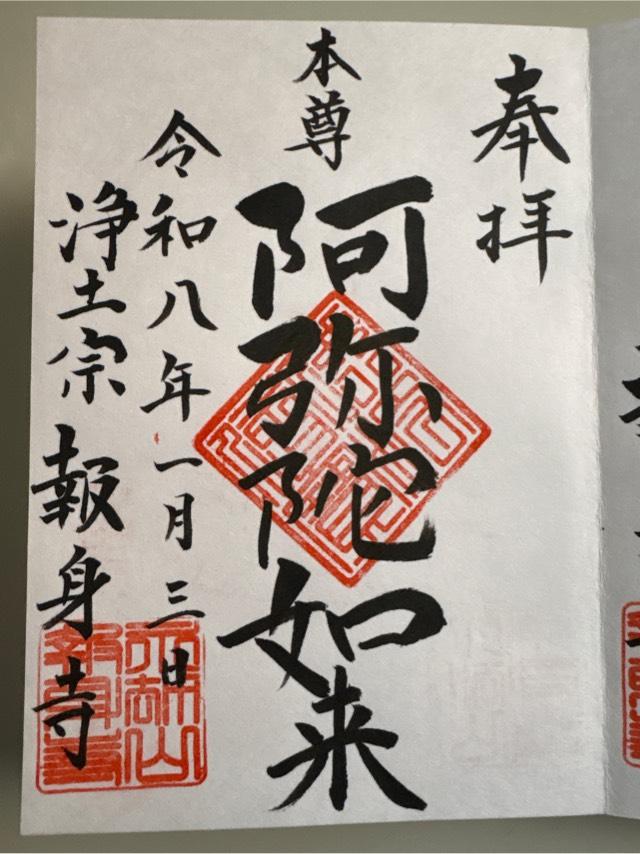 奉拝
本尊
阿弥陀如来
令和八年一月三日
浄土宗 報身寺